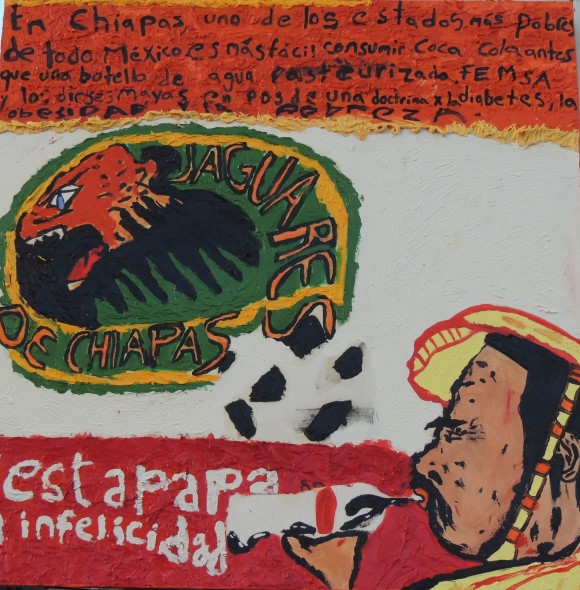 En Chiapas, uno de los estados más pobres
de todo México, es más fácil consumir Coca Cola antes
que una botella de agua pasteurizada. FEMSA
y los dioses mayas en pos de una doctrina x la diabetes, la
obesidad y la pobreza.
JAGUARES
DE CHIAPAS
estapapa
infelicidad